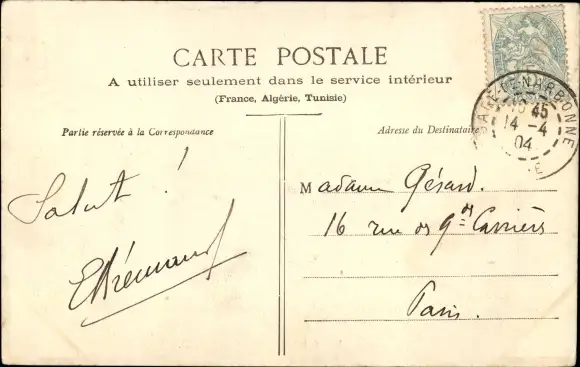 CARTE POSTALE
A utiliser seulement dans le service intérieur
(France, Algérie, Tunisie)
Partie réservée à la Correspondance
Adresse du Destinataire
DE NARBONNE
45
14 - 4
04
Salut !
Madame Gérard.
16 rue des Gdes Carrières
Paris.